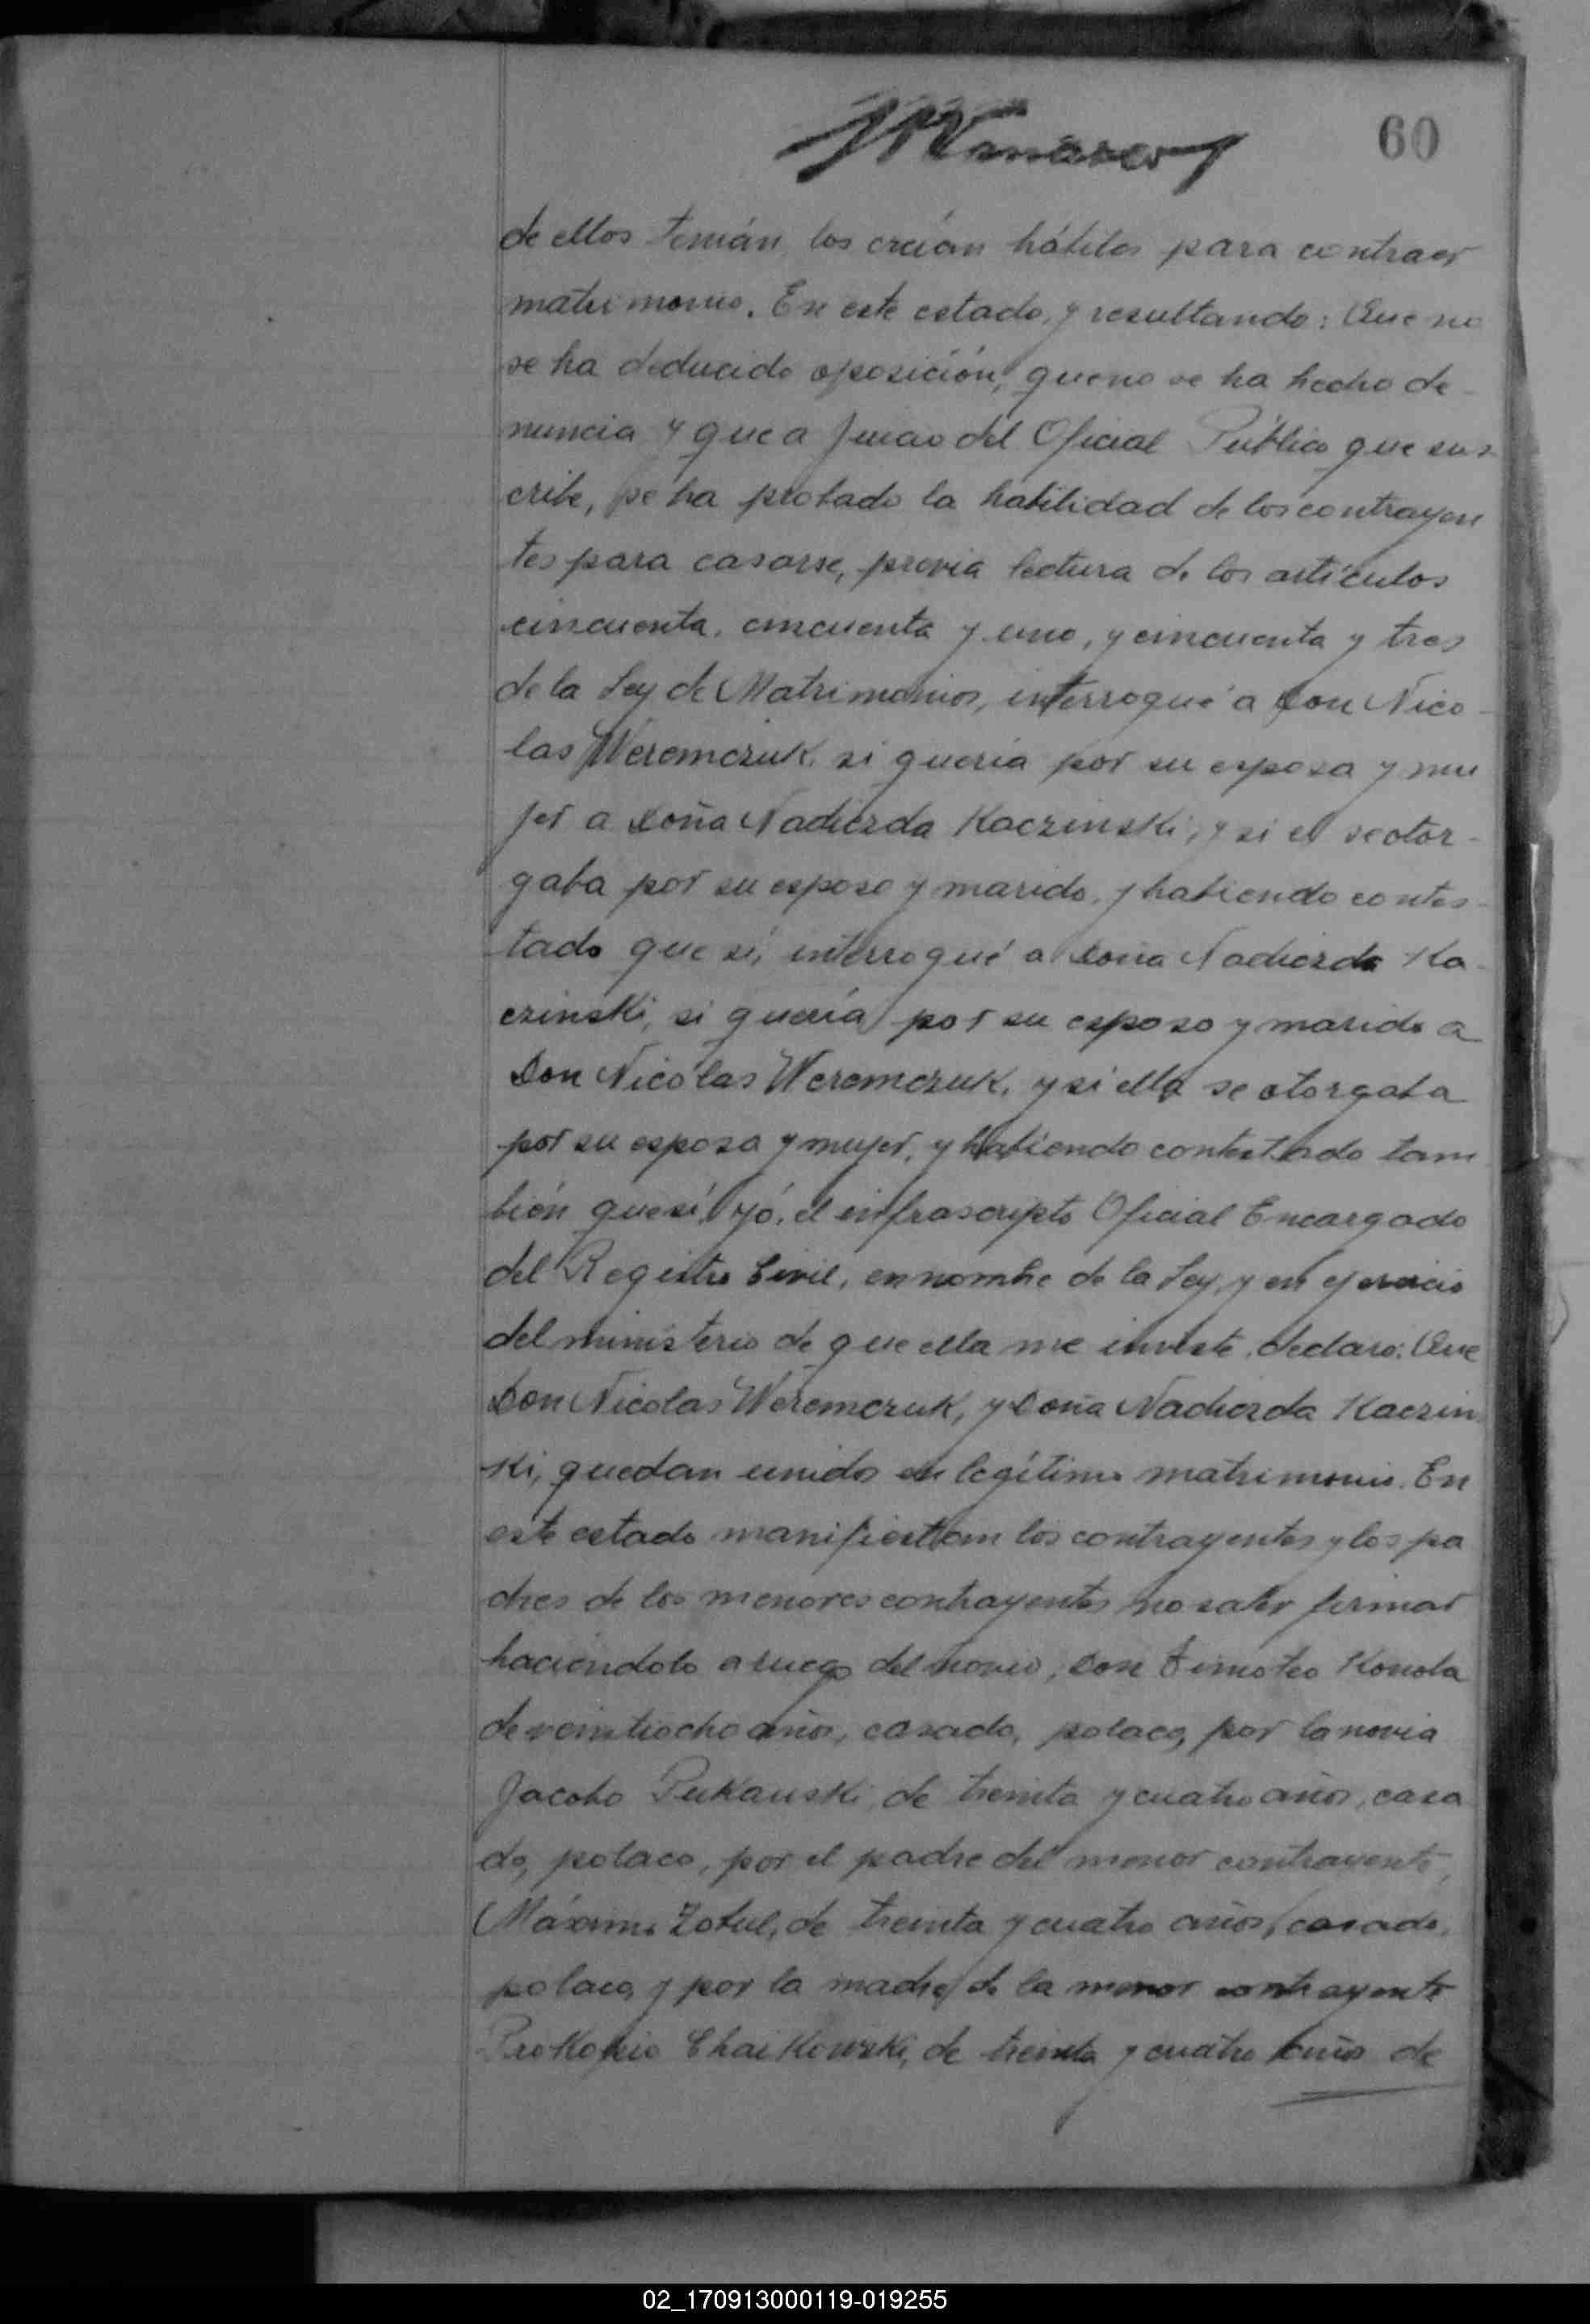 60
de ellos tenían, los creían hábiles para contraer
matrimonio. En este estado, y resultando: Que no
se ha deducido oposición, que no se ha hecho de-
nuncia y que a juicio del Oficial Público que sus-
cribe, se ha probado la habilidad de los contrayen
tes para casarse, previa lectura de los artículos
cincuenta, cincuenta y uno, y cincuenta y tres
de la Ley de Matrimonios, interrogué a Don Nico-
las Weremczuk, si quería por su esposa y mu
jer a Doña Nadierda Kaczinski, y si el se otor-
gaba por su esposo y marido, y habiendo contes-
tado que sí, interrogué a Doña Nadierda Ka-
czinski, si quería por su esposo y marido a
Don Nicolas Weremczuk, y si ella se otorgaba
por su esposa y mujer, y habiendo contestado tam
bién que sí, yó, el infrascripto Oficial Encargado
del Registro Civil, en nombre de la Ley, y en ejercicio
del ministerio de que ella me inviste, declaro: Que
Don Nicolas Weremczuk, y Doña Nadierda Kaczins
ki, quedan unidos en legítimo matrimonio. En
este estado manifiestan los contrayentes y los pa
dres de los menores contrayentes, no saber firmar
haciendolo a ruego del novio, Don Timoteo Konola
de veintiocho años, casado, polaco, por la novia
Jacobo Pukauski, de treinta y cuatro años, casa
do, polaco, por el padre del menor contrayente,
Máximo Zobul, de treinta y cuatro años, casado,
polaco, y por la madre de la menor contrayente
Prokopio Chaikowski, de treinta y cuatro años de
02_170913000119-019255